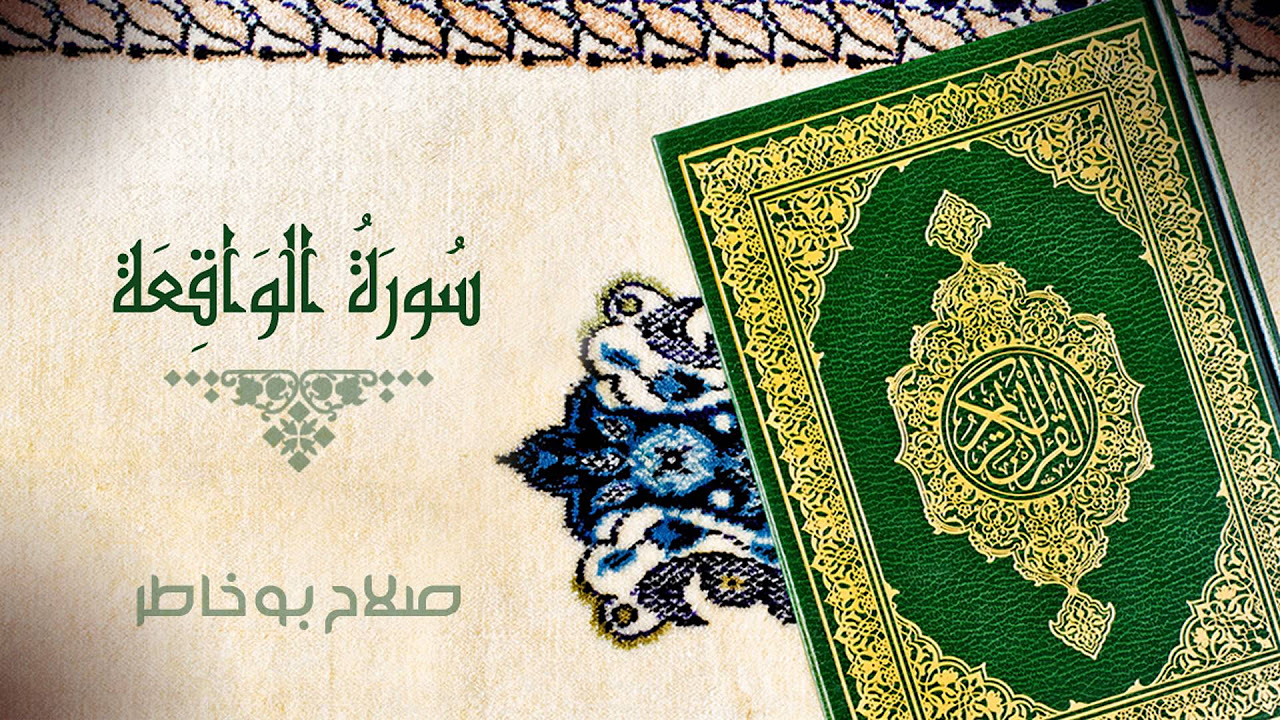 سُورَةُ الوَاقِعَة
صلاح بوخاطر
القرآن الكريم